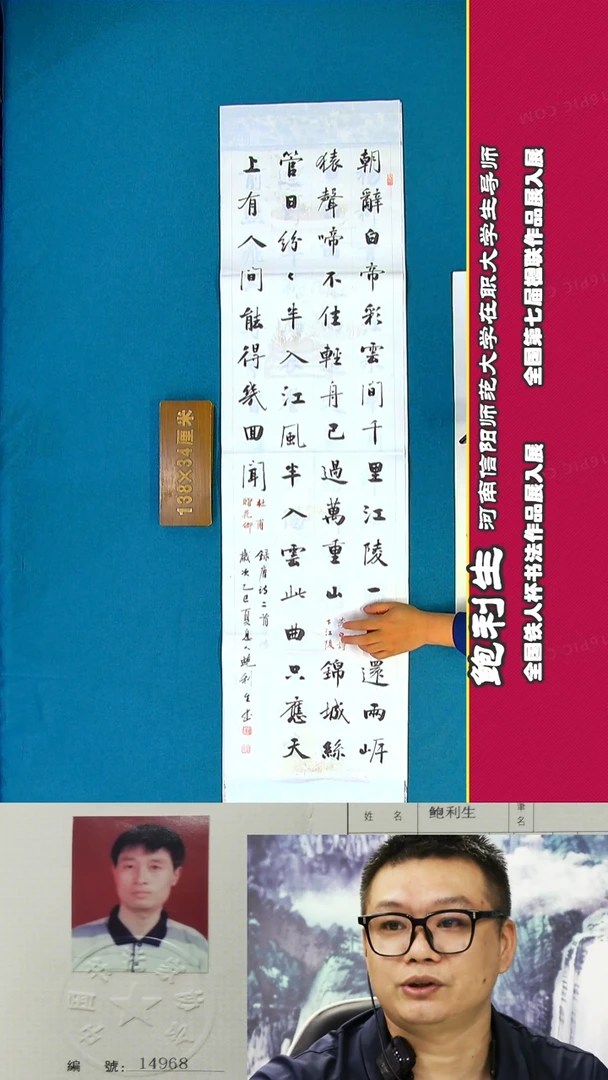 朝辭白帝彩雲間千里江陵一還兩岸
猿聲啼不住輕舟已過萬重山
下江陵
錦城絲
管日紛〻半入江風半入雲此曲只應天
上有人間能得幾回聞
杜甫
贈花卿
錄唐詩二首
歲次乙巳夏鮑利生書
138×34厘米
鲍利生 河南信阳师范大学在职大学生导师
全国铁人杯书法作品展入展 全国第七届楹联作品展入展
姓名 鲍利生 筆名
編號: 14968